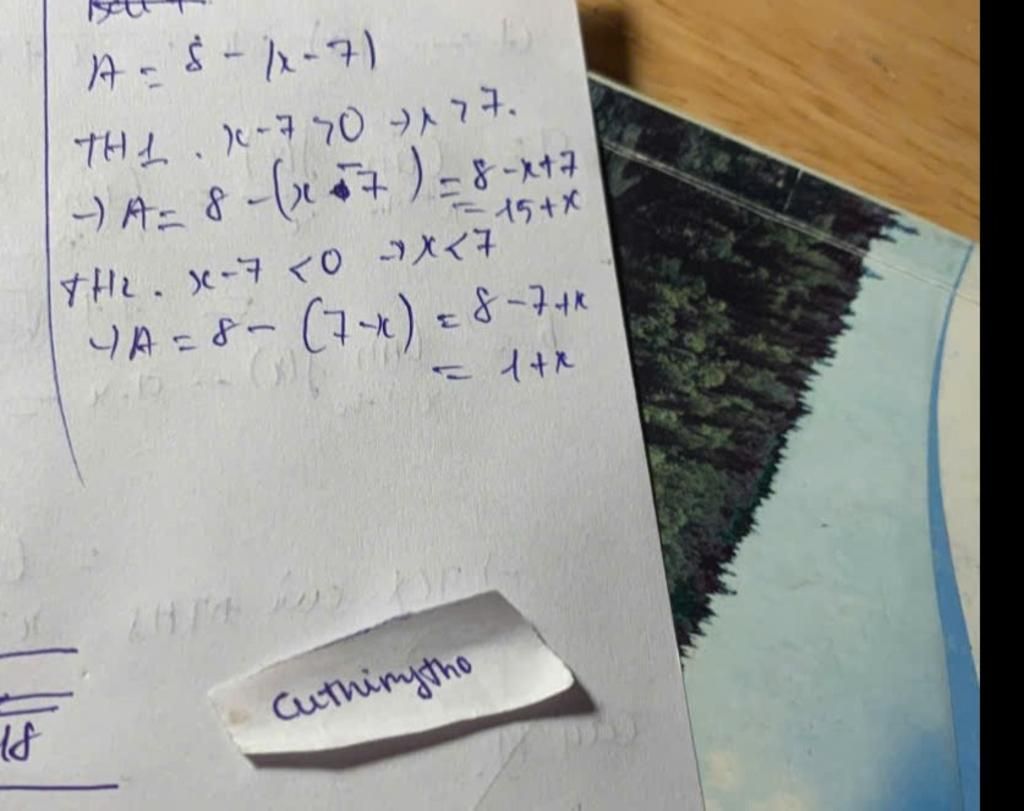 A = 8 - |x - 7|
TH1. x - 7 > 0 → x > 7.
→ A = 8 - (x - 7) = 8 - x + 7
= 15 + x
TH2. x - 7 < 0 → x < 7
→ A = 8 - (7 - x) = 8 - 7 + x
= 1 + x
18
cuthimytho